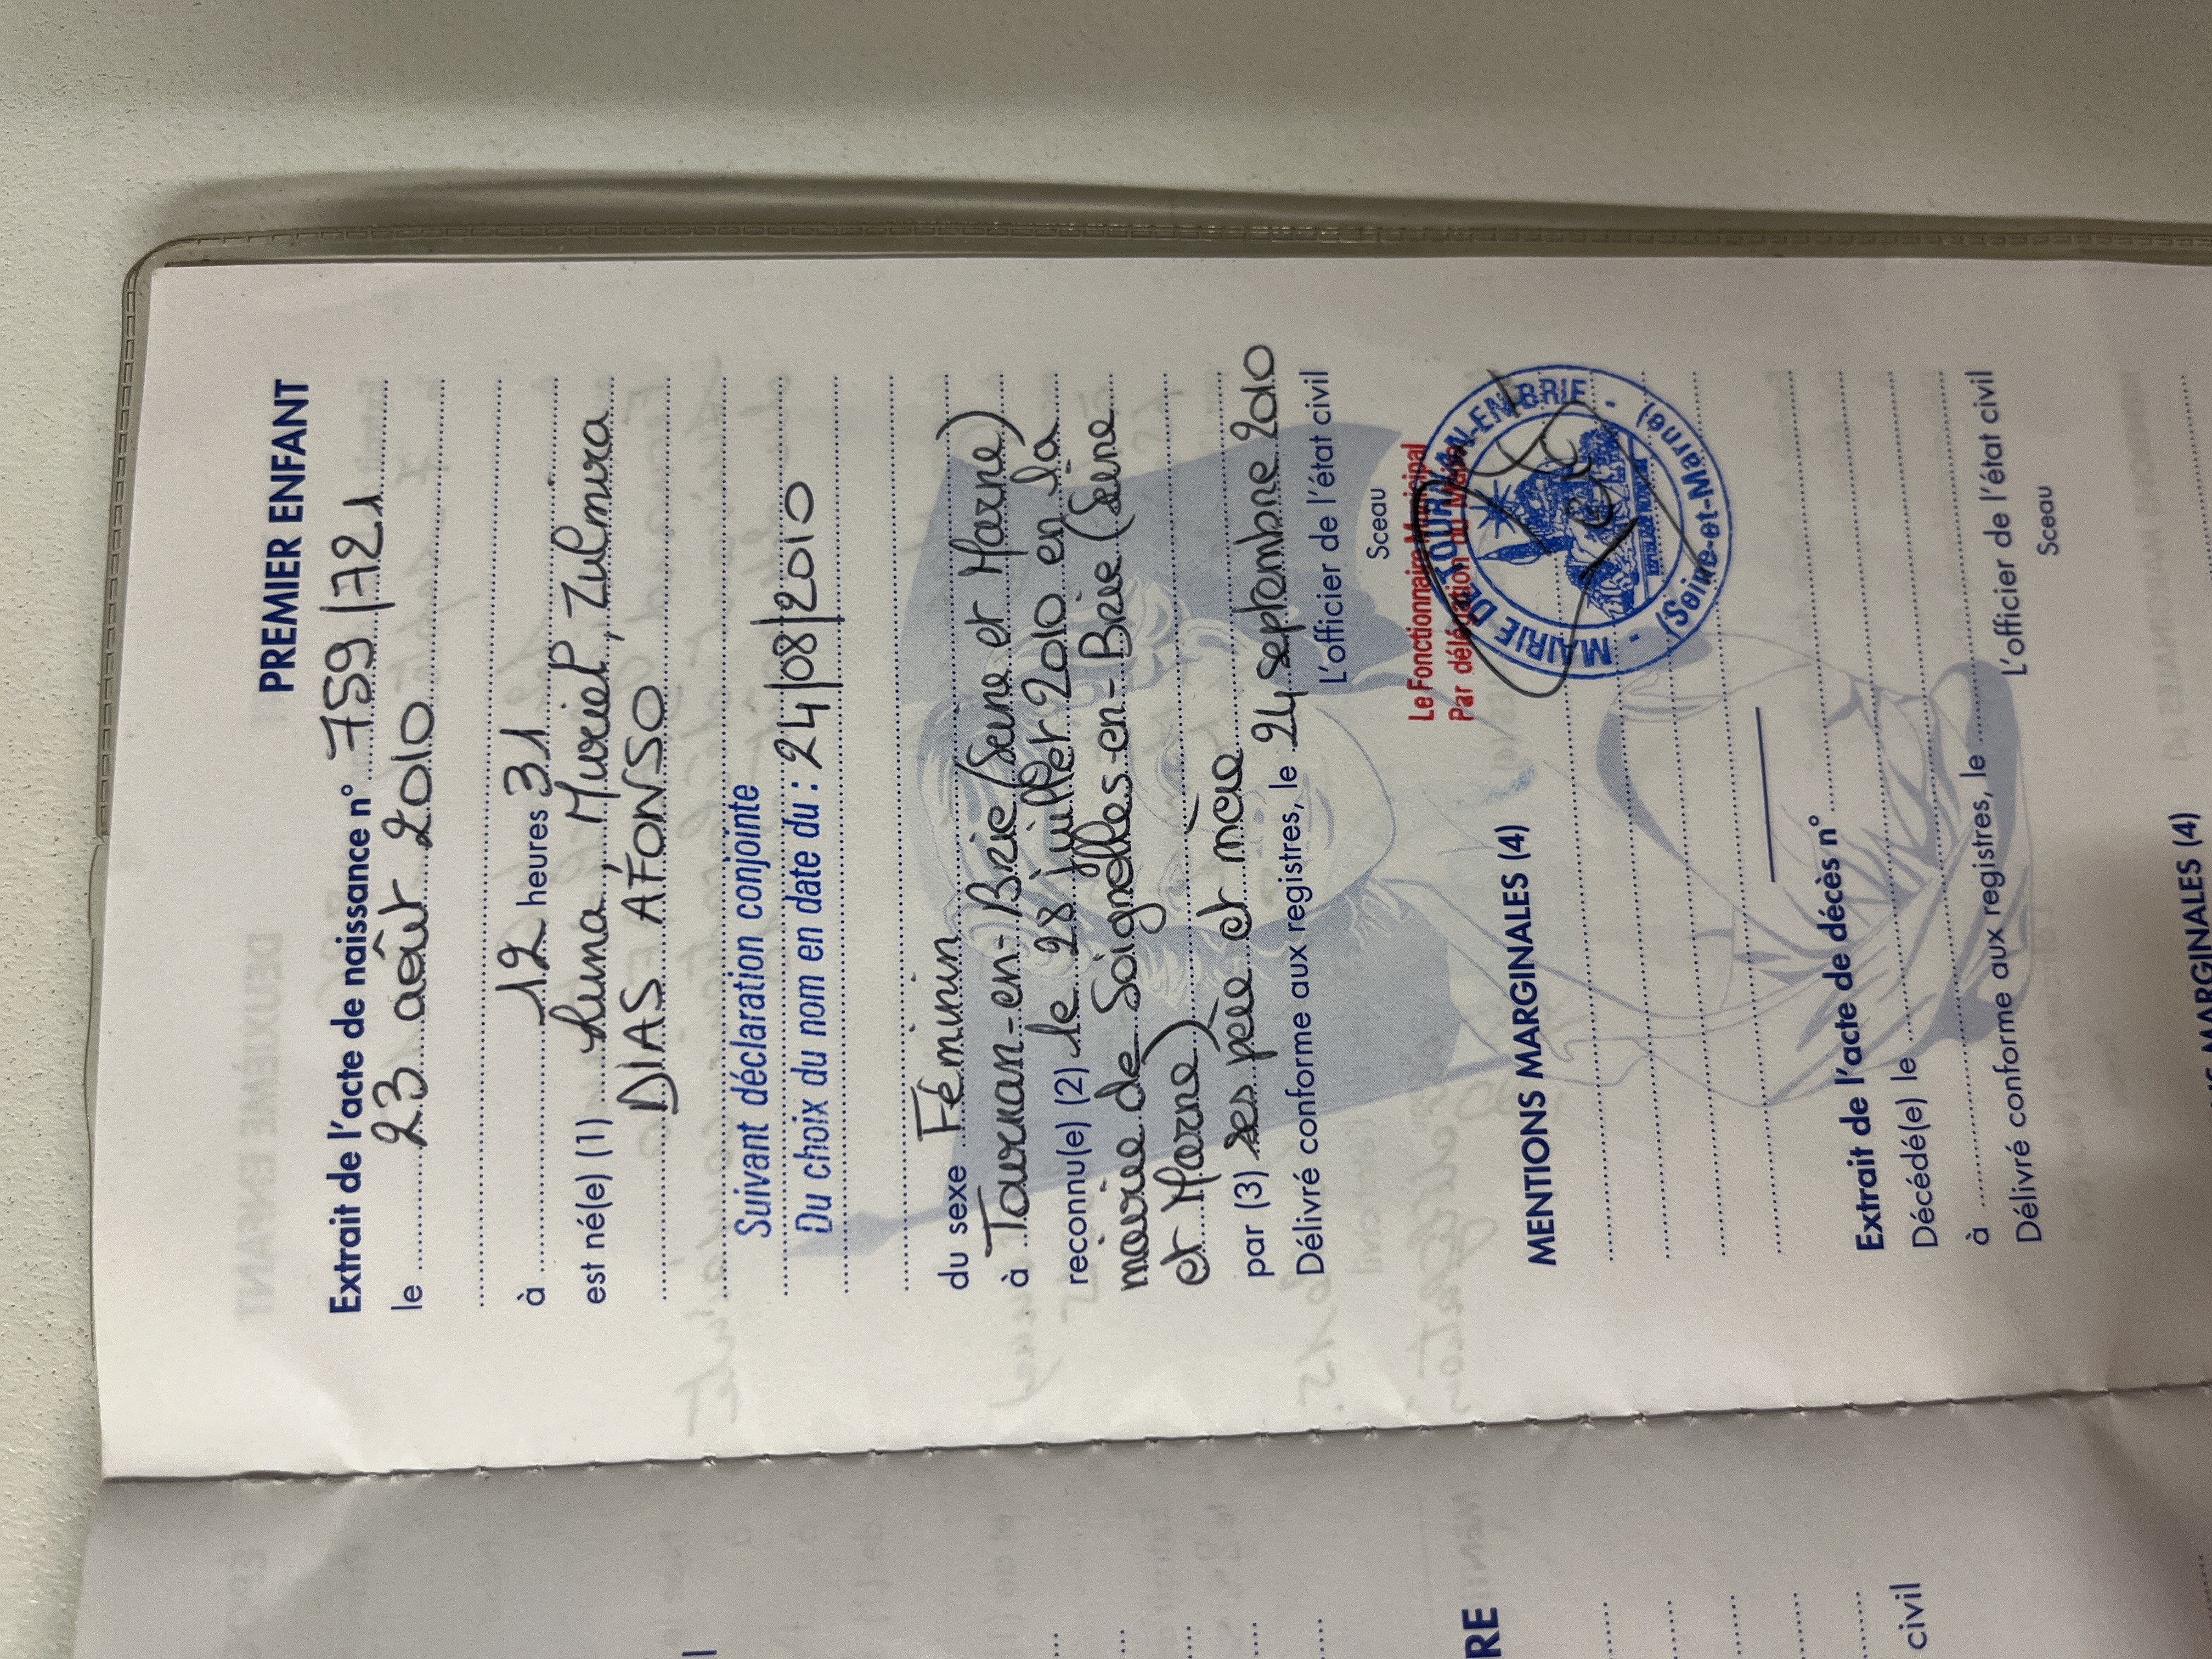 PREMIER ENFANT
Extrait de l'acte de naissance n° 759/721
le 23 août 2010
à 12 heures 31
est né(e) (1) Luna, Muriel, Zulmira
DIAS AFONSO
Suivant déclaration conjointe
Du choix du nom en date du : 24/08/2010
du sexe Féminin
à Tournan-en-Brie (Seine et Marne)
reconnu(e) (2) le 28 juillet 2010 en la
mairie de Soignolles-en-Brie (Seine
et Marne)
par (3) ses père et mère
Délivré conforme aux registres, le 24 septembre 2010
L'officier de l'état civil
Sceau
Le Fonctionnaire Municipal
Par délégation du Maire
MAIRIE DE TOURNAN-EN-BRIE
(Seine-et-Marne)
MENTIONS MARGINALES (4)
Extrait de l'acte de décès n°
Décédé(e) le
à
Délivré conforme aux registres, le
L'officier de l'état civil
Sceau
MARGINALES (4)
RE
civil